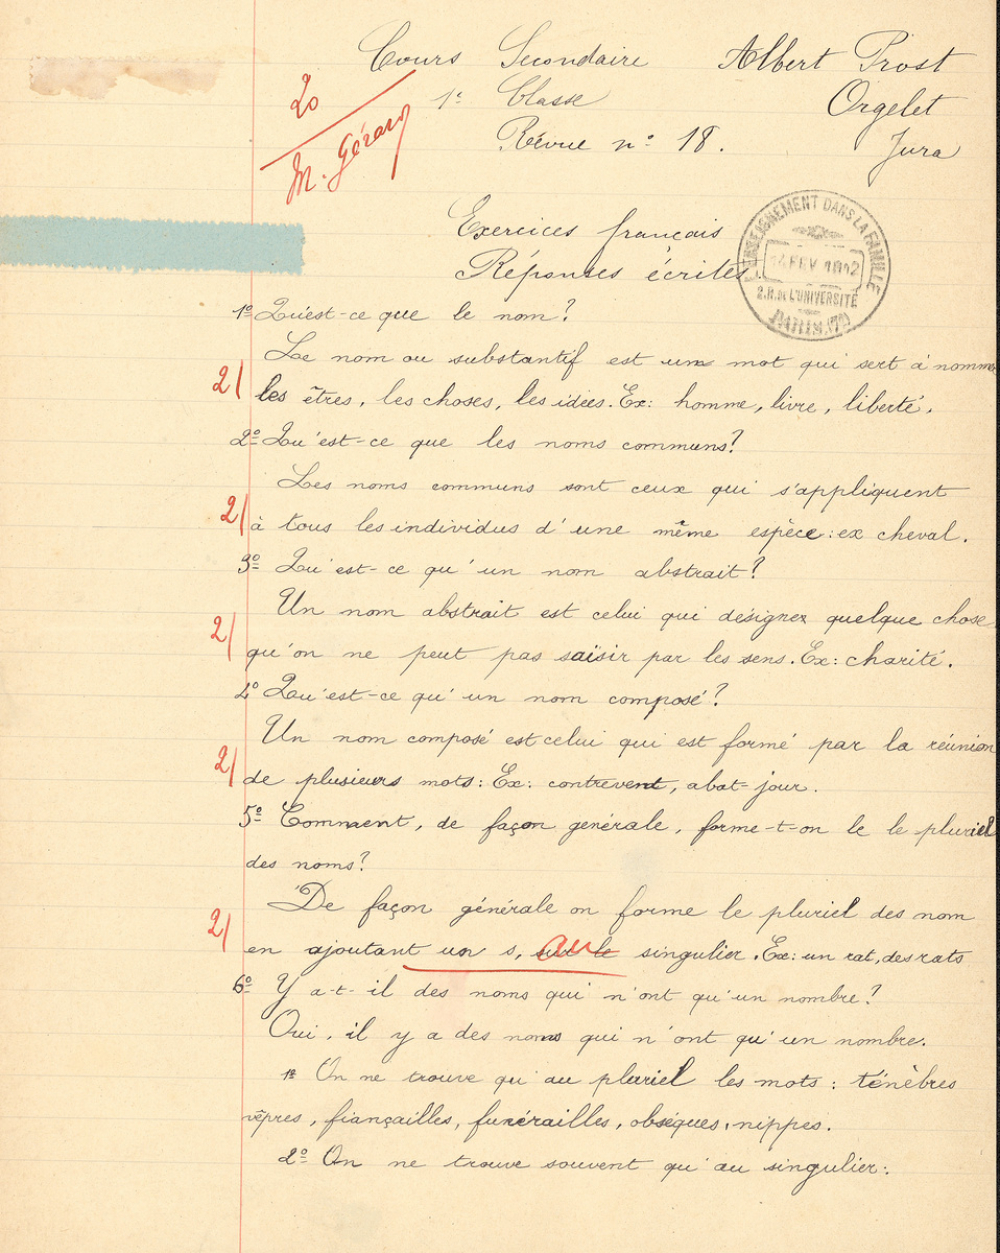 Cours Secondaire Albert Prost
20 1e Classe Orgelet
M. Gérard Révue no 18. Jura
Exercices français
Réponses écrites.
L'ENSEIGNEMENT DANS LA FAMILLE
14 FEV 1912
2. R. de L'UNIVERSITÉ
PARIS (7e)
1o Qu'est-ce que le nom?
Le nom ou substantif est un mot qui sert à nommer
2/ les êtres, les choses, les idées. Ex: homme, livre, liberté.
2o Qu'est-ce que les noms communs?
Les noms communs sont ceux qui s'appliquent
2/ à tous les individus d'une même espèce: ex cheval.
3o Qu'est-ce qu'un nom abstrait?
Un nom abstrait est celui qui désigner quelque chose
2/ qu'on ne peut pas saïsir par les sens. Ex: charité.
4o Qu'est-ce qu'un nom composé?
Un nom composé est celui qui est formé par la réunion
2/ de plusieurs mots: Ex: contrevent, abat-jour.
5o Comment, de façon générale, forme-t-on le le pluriel
des noms?
De façon générale on forme le pluriel des nom
2/ en ajoutant un s, au singulier. Ex: un rat, des rats
6o Y a-t-il des noms qui n'ont qu'un nombre?
Oui, il y a des noms qui n'ont qu'un nombre.
1o On ne trouve qu'au pluriel les mots: ténèbres
vêpres, fiançailles, funérailles, obséques, nippes.
2o On ne trouve souvent qu'au singulier: